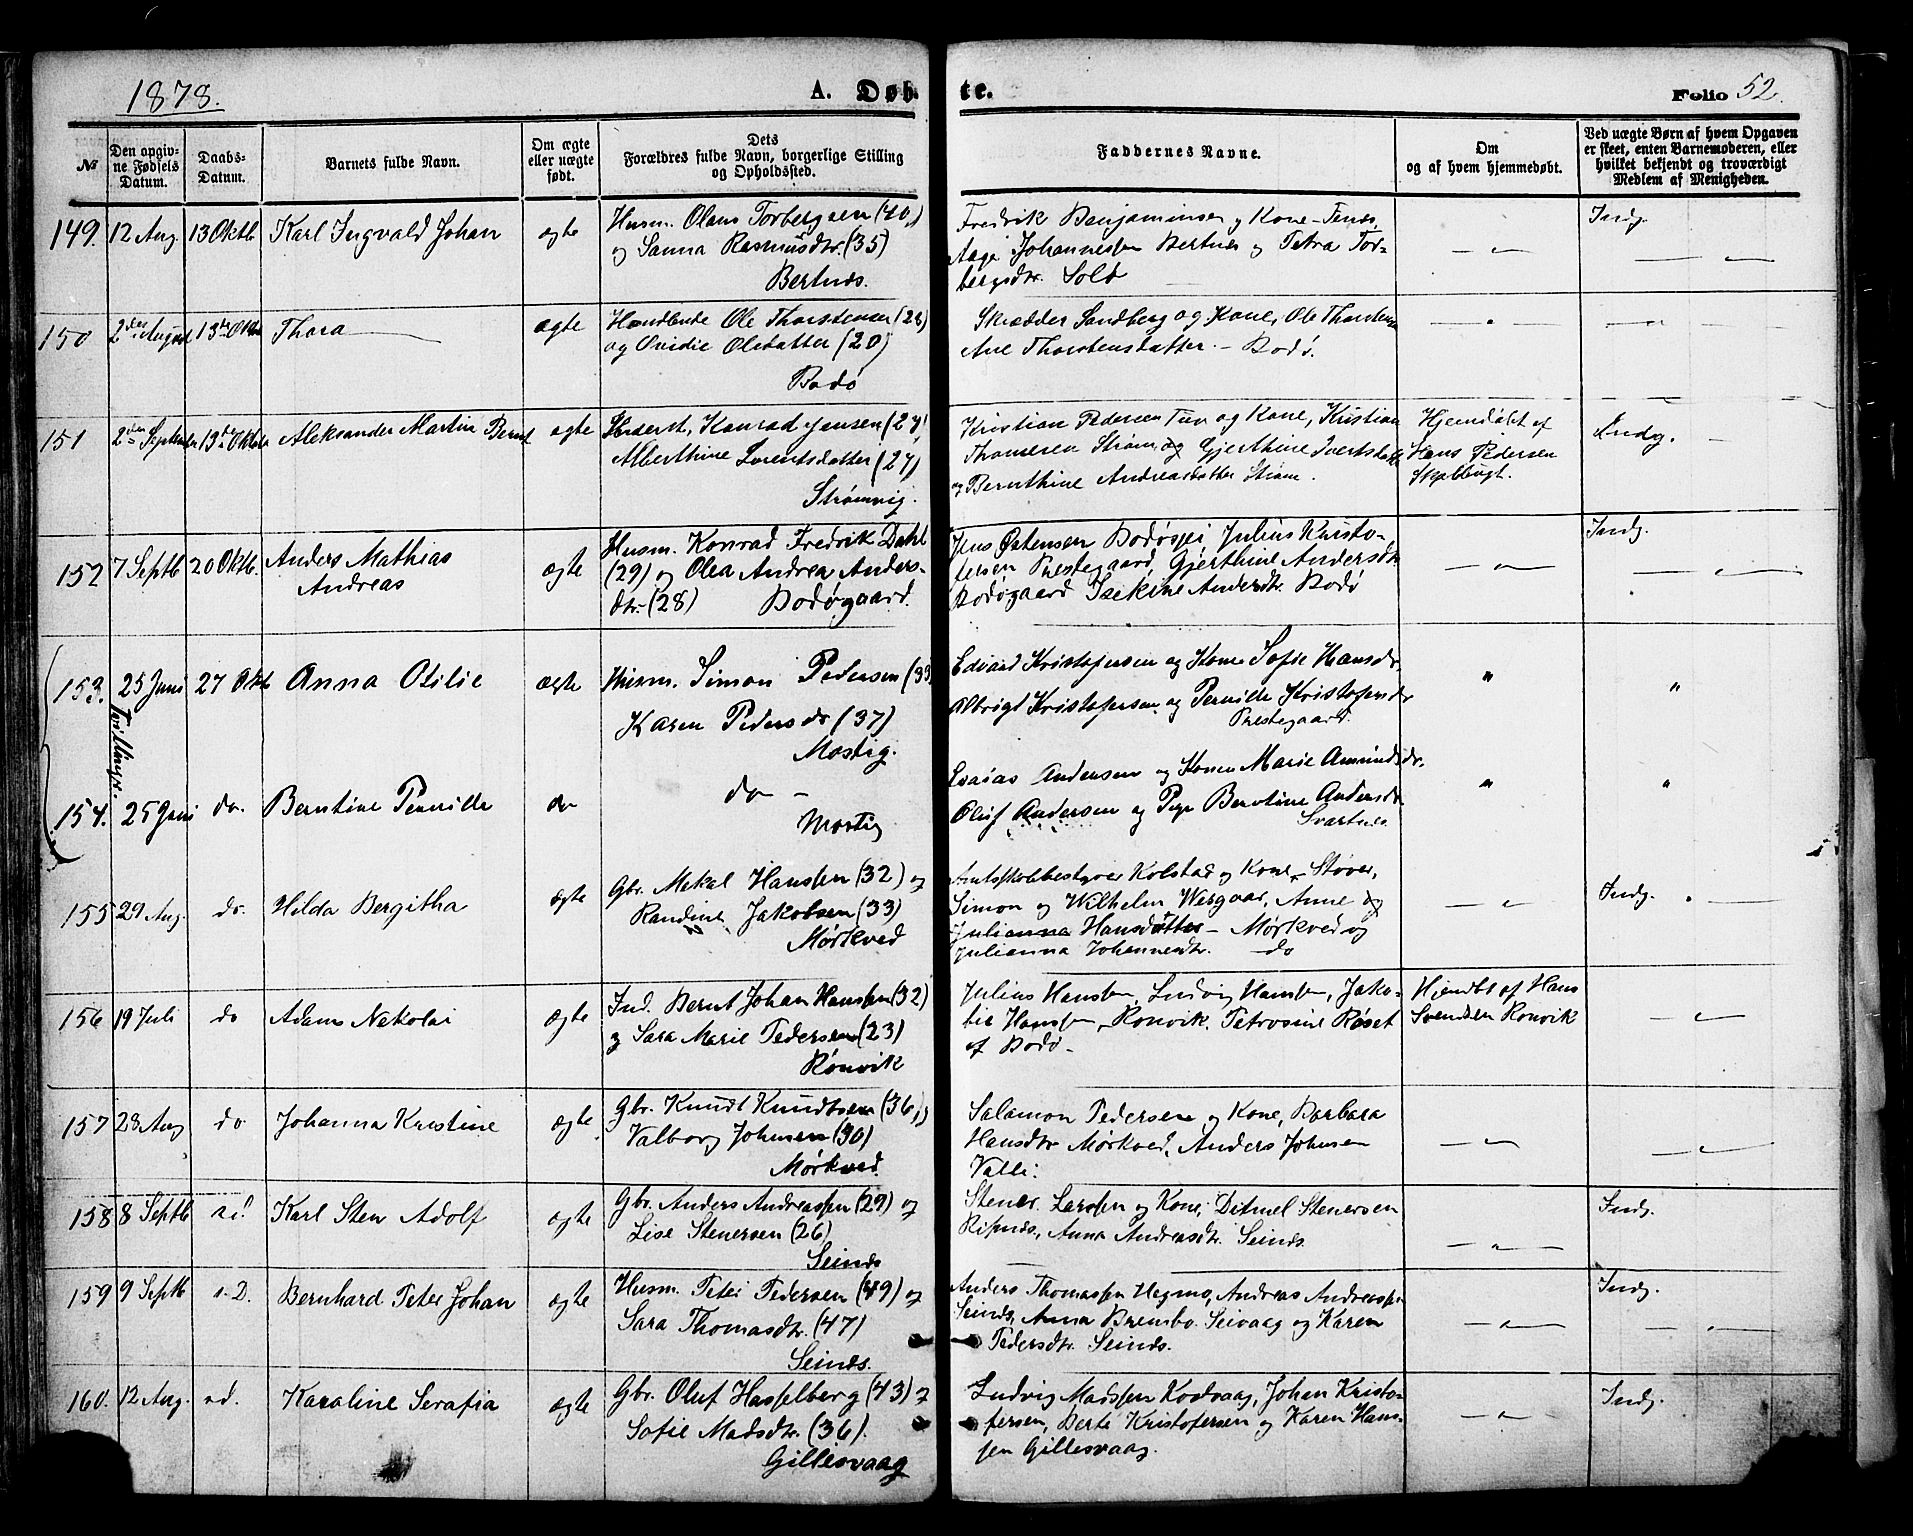 1878.
A. Døb
te.
Folio 52.
№
Den opgiv-
ne Fødsels
Datum.
Daabs-
Datum.
Barnets fulde Navn.
Om ægte
eller uægte
født.
Dets
Forældres fulde Navn, borgerlige Stilling
og Opholdssted.
Faddernes Navne.
Om
og af hvem hjemmedøbt.
Ved uægte Børn af hvem Opgaven
er skeet, enten Barnemoderen, eller
hvilket bekjendt og troværdigt
Medlem af Menigheden.
149. 12 Aug. 13 Oktb Karl Ingvald Johan ægte
Husm. Olaus Torbergsen (40,)
og Sanna Rasmusdtr. (35)
Bertnæs.
Fredrik Benjaminsen og Kone
Aage Johannesen Bertnes og Petra Tor-
bergsdtr. Solø
Indg.
150 2den August 13de Oktb Thora ægte
Handlende Ole Thorstensen (28)
og Ovidie Olsdatter (20)
Bodø
Skrædder Sandberg og Kone, Ole Thorstensen
Ane Thorstensdatter. - Bodø.
151 2den September 13de Oktb Aleksander Martin Bernt ægte
Konrad Jensen (27)
Alberthine Lorentsdatter (27)
Strømvig.
Kristian Pedersen Tuv og Kone, Kristian
Thomesen Strøm og Gjerthine Ivertsdatter
og Bernthine Andreasdatter Strøm.
Hjemdøbt af
Hans Pedersen
Indg.
152 7 Septb 20 Oktb. Anders Mathias
Andreas
ægte
Husm. Konrad Fredrik Dahl
(29) og Olea Andrea Anders-
dtr. (28) Bodøgaard.
Jens Østensen Bodøsjø Julius Kristo-
fersen Prestegaard, Gjerthine Andersdtr
Bodøgaard Isekine Andersdtr. Bodø
Indg.
153. 25 Juni 27 Oktb Anna Otilie ægte
Husm. Simon Pedersen (33)
Karen Pedersdr (37)
Mostig.
Edvard Kristofersen og Kone Sofie Hansdr.
Albrigt Kristofersen og Pernille Kristofersdr
Prestegaard.
"
"
Tvillinger.
154. 25 Juni do. Berntine Pernille do
do -
Mostig
Esaias Andersen og Kone Marie Amundsdr.
Oluf Andersen og Pige Berntine Andersdr.
Svartnes.
"
"
155 29 Aug. do. Hilda Bergitha ægte
Gbr. Mekal Hanssen (32) og
Randine Jakobsen (33)
Mørkved
Amtsskolebestyrer Kolstad og Kone - Støver,
Simon og Wilhelm Wesgaar, Anne og
Julianna Hansdatter - Mørkved og
Julianna Johannesdtr. do
Indg.
156 19 Juli do Adam Nekolai ægte
Ind. Bernt Johan Hanssen (32)
og Sara Marie Pedersen (23)
Rønvik
Julius Hanssen, Ludvig Hanssen, Jako-
bie Hanssen, Rønvik, Petrosine Røset
af Bodø -
Hjemdbt af Hans
Svendsen Rønvik
157 28 Aug do Johanna Kristine ægte
Gbr. Knudt Knudtsen (36,) og
Valborg Johnsen (30)
Mørkved.
Salamon Pedersen og Kone, Barbara
Hansdtr Mørkved, Anders Johnsen
Valli.
158 8 Septb Karl Sten Adolf ægte
Gbr. Anders Andreassen (29) og
Lise Stenersen (26)
Seinæs
Stener Larssen og Kone, Ditmel Stenersen
Ripnæs, Anna Andreasdtr. Seinæs.
Indg.
159 9 Septb s.D. Bernhard Peter Johan ægte
Husm. Peter Pedersen (49) og
Sara Thomasdtr. (47)
Seinæs.
Anders Thomassen Hagmo, Andreas Andreassen
Seinæs, Anna Brembo. Seivaag og Karen
Pedersdtr. Seinæs.
Indg.
160. 12 Aug. s.d. Karaline Serafia ægte
Gbr. Oluf Hasselberg (43) og
Sofie Madsdtr. (36).
Gillesvaag
Ludvig Madssen Kodvaag, Johan Kristo-
fersen, Berte Kristofersen og Karen Hans-
sen Gillesvaag.
Indg.